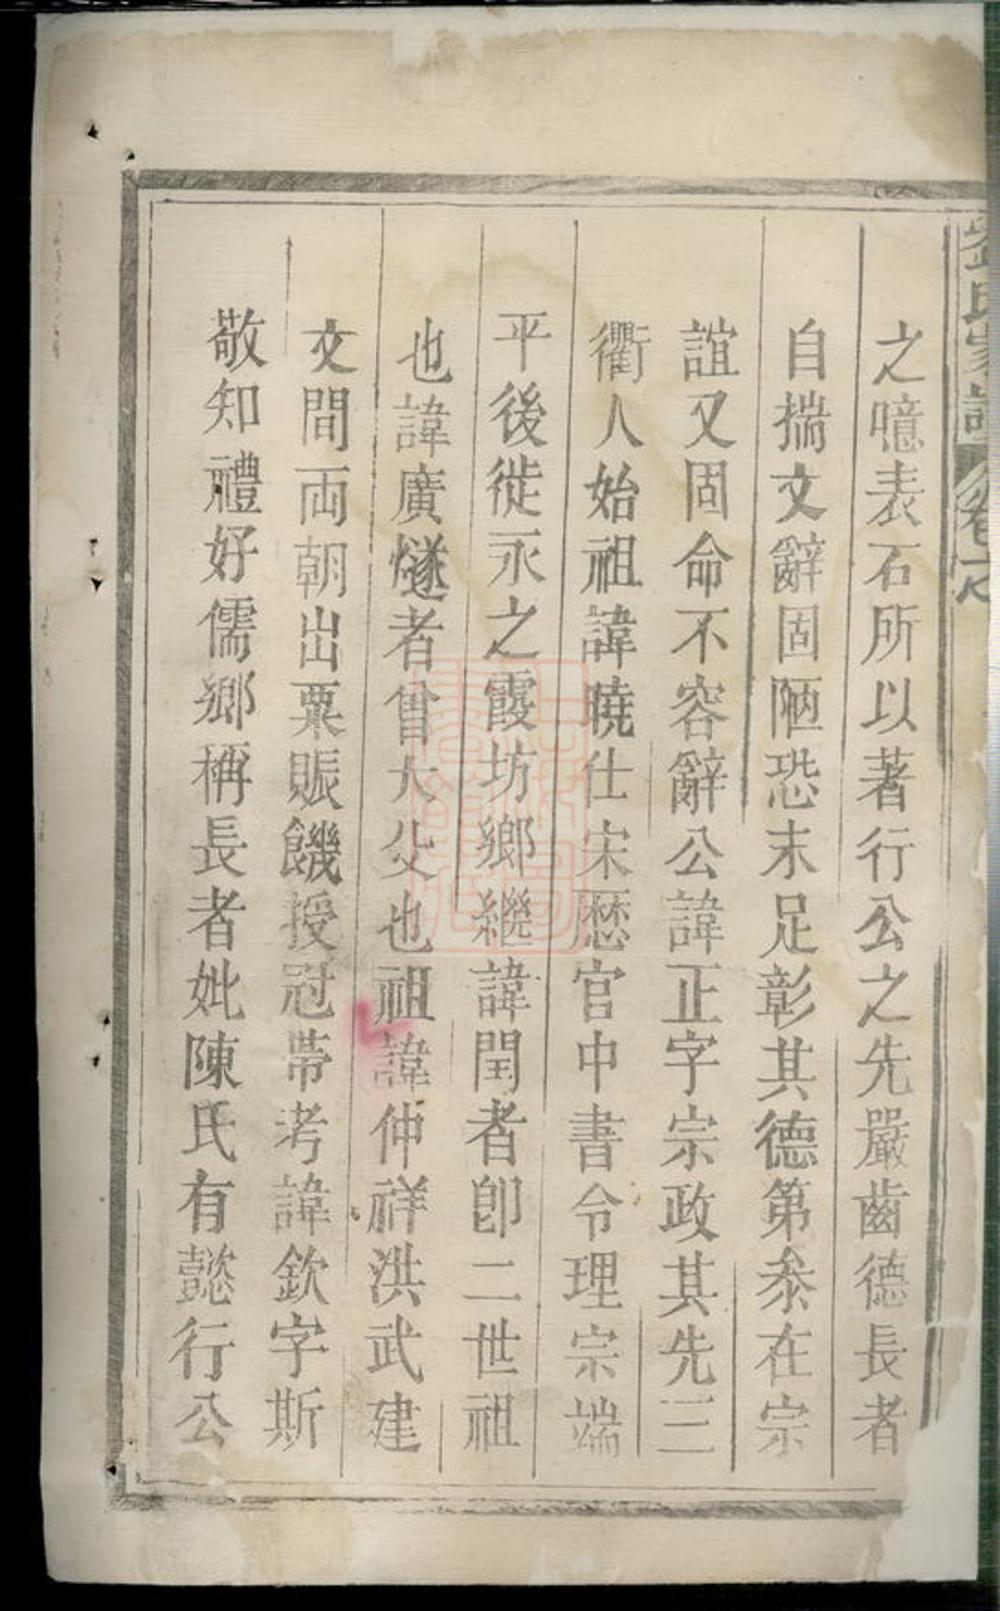 劉氏家譜 卷之
之噫表石所以著行公之先嚴齒德長者
自揣文辭固陋恐末足彰其德第忝在宗
誼又固命不容辭公諱正字宗政其先三
衢人始祖諱曉仕宋歷官中書令理宗端
平後徙永之霞坊鄉繼諱閏者卽二世祖
也諱廣燧者曾大父也祖諱仲祥洪武建
文間両朝出粟賑饑授冠帶考諱欽字斯
敬知禮好儒鄉稱長者妣陳氏有懿行公